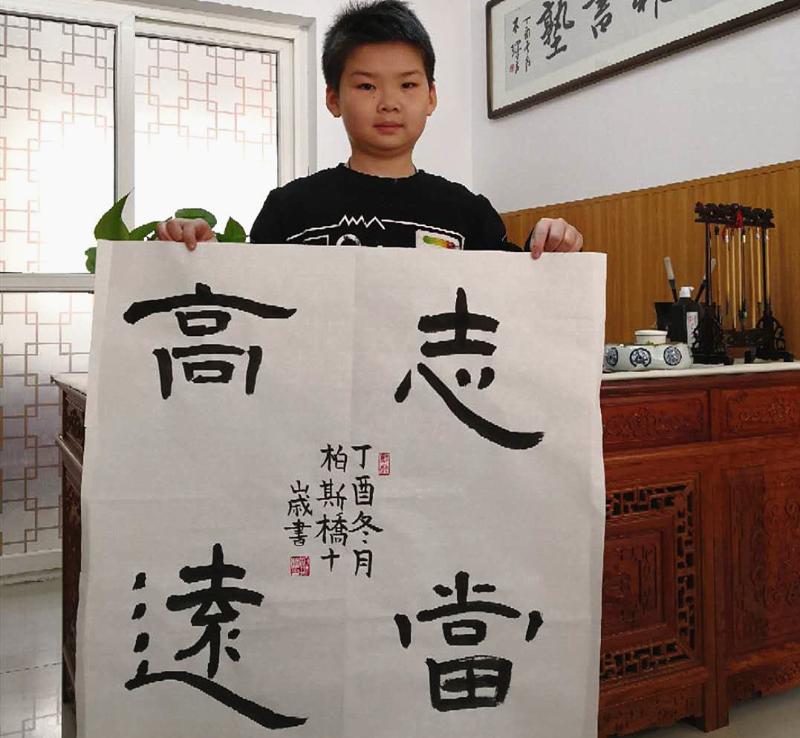 志當
高遠
丁酉冬月
柏斯橋十
歲書
書塾